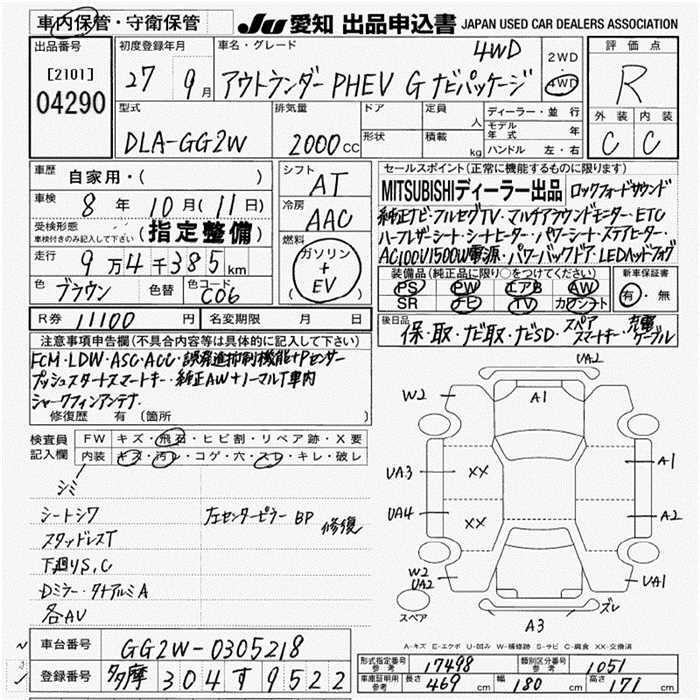 車内保管・守衛保管
JU 愛知 出品申込書 JAPAN USED CAR DEALERS ASSOCIATION
出品番号
[2101]
04290
初度登録年月
27 9月
車名・グレード
4WD
アウトランダー PHEV G ナビパッケージ
2WD
4WD
評価点
R
外装 内装
C C
型式
DLA-GG2W
排気量
2000cc
ドア
形状
定員 人
積載 kg
ディーラー・並行
モデル年式 年
ハンドル 左・右
車歴
自家用・( )
車検
8年10月(11日)
受検形態
車検付きのみ記入して下さい
(指定整備)
走行
9万4千385km
色
ブラウン
色替
色コード
C06
シフト
AT
冷房
AAC
燃料
ガソリン
+
EV
セールスポイント(正常に機能するものに限ります)
MITSUBISHIディーラー出品 ロックフォードサウンド
純正ナビ・フルセグTV・マルチアラウンドモニター・ETC
ハーフレザーシート・シートヒーター・パワーシート・ステアヒーター・
AC100V1500W電源・パワーバックドア・LEDヘッドフォグ
装備品(純正品に限り○をつけてください)
PS PW エアB AW
SR ナビ TV カワシート
新車保証書
有・無
R券 11100円
名変期限 月 日
後日品
保・取・ナビ取・ナビSD・スペアスマートキー・充電ケーブル
注意事項申告欄(不具合内容等は具体的に記入して下さい)
FCM・LDW・ASC・ACC・誤発進抑制機能+Pセンサー
プッシュスタートスマートキー・純正AW+ノーマルT車内
シャークフィンアンテナ・
修復歴 有 〔箇所 〕
検査員記入欄
FW キズ・飛石・ヒビ割・リペア跡・X要
内装 キズ・汚レ・コゲ・穴・スレ・キレ・破レ
シミ
シートシワ
スタッドレスT
下廻りS,C
Dミラー・タナアルミA
各AV
左センターピラー BP 修復
UA2
W2
A1
UA3
XX
A1
UA4
XX
A2
W2
UA2
UA1
スペア
ズレ
A3
A-キズ E-エクボ U-凹み W-補修跡 S-サビ C-腐食 XX-交換済
車台番号
GG2W-0305218
登録番号
多摩 304 す 9522
形式指定番号 参考
17498
類別区分番号 参考
1051
車庫証明用 参考
長さ 469cm 幅 180cm 高さ 171cm